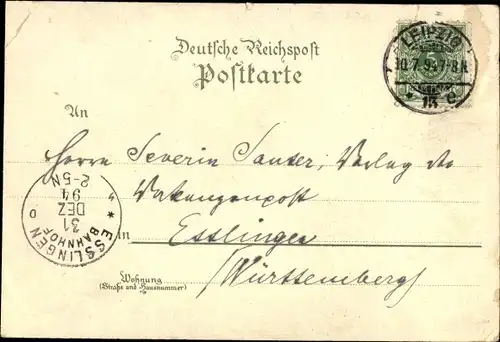 Deutsche Reichspost
Postkarte
LEIPZIG
10.7.94.7-8N.
* 13 c.
An
Herrn Severin Sauter, Verlag der
Vakanzenpost
in Esslingen
(Württemberg)
Wohnung
(Straße und Hausnummer)
ESSLINGEN
BAHNHOF
31
DEZ
94
2-5N